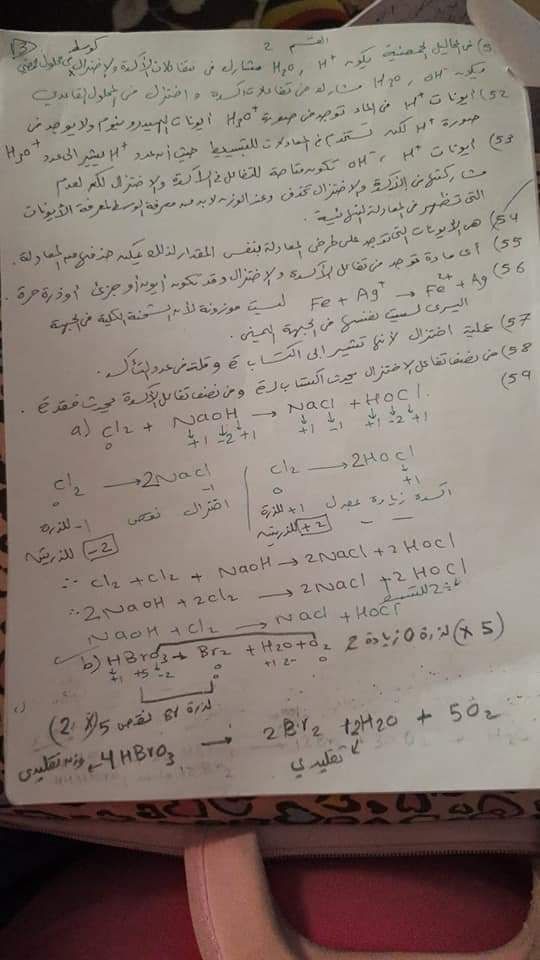 القسم 2
51) في المحاليل الحمضية يكون H+ ، H2O مشارك في تفاعلات الأكسدة والاختزال في محلول حمضي
ويكون OH- ، H2O مشارك في تفاعلات اكسدة واختزال في المحلول القاعدي
52) أيونات H+ في الماء توجد في صورة H3O+ أيونات الهيدرونيوم ولا يوجد في
صورة H+ لكنه تستخدم في المعادلات للتبسيط حيث أن عدد H+ يشير إلى عدد H3O+
53) أيونات H+ ، OH- تكون متاحة للتفاعل في الأكسدة والاختزال لكن لعدم
مشاركتها في الأكسدة والاختزال تحذف وعند الوزن لابد من معرفة الوسط لمعرفة الأيونات
التي تظهر في المعادلة النهائية.
54) هي الأيونات التي توجد على طرفي المعادلة بنفس المقدار لذلك يمكن حذفها من المعادلة.
55) أي مادة توجد في تفاعل الأكسدة والاختزال وقد تكون أيون أو جزئ أو ذرة حرة.
56) Fe + Ag+ → Fe2+ + Ag ليست موزونة لأن الشحنة الكلية في الجهة
اليسرى ليست نفسها في الجهة اليمنى.
57) عملية اختزال لأنها تشير إلى اكتساب e وقلت في عدد التأكسد.
58) في نصف تفاعل الاختزال يحدث اكتساب لـ e وفي نصف تفاعل الأكسدة يحدث فقد e.
59)
a) Cl2 + NaOH → NaCl + HOCl
0 +1 -2 +1 +1 -1 +1 -2 +1
Cl2 → 2NaCl
0 -1
اختزال نقص
-1 للذرة
-2 للذريتين
Cl2 → 2HOCl
0 +1
اكسدة زيادة بمعدل
+1 للذرة
+2 للذريتين
∴ Cl2 + Cl2 + NaOH → 2NaCl + 2HOCl
∴ 2NaOH + 2Cl2 → 2NaCl + 2HOCl
NaOH + Cl2 → NaCl + HOCl
b) HBrO3 → Br2 + H2O + O2
+1 +5 -2 0 +1 2- 0
لذرة O زيادة 2 (x 5)
لذرة Br نقص 5 (x 2)
وزن تقليدي 4HBrO3 → 2Br2 + 2H2O + 5O2
تقليدي